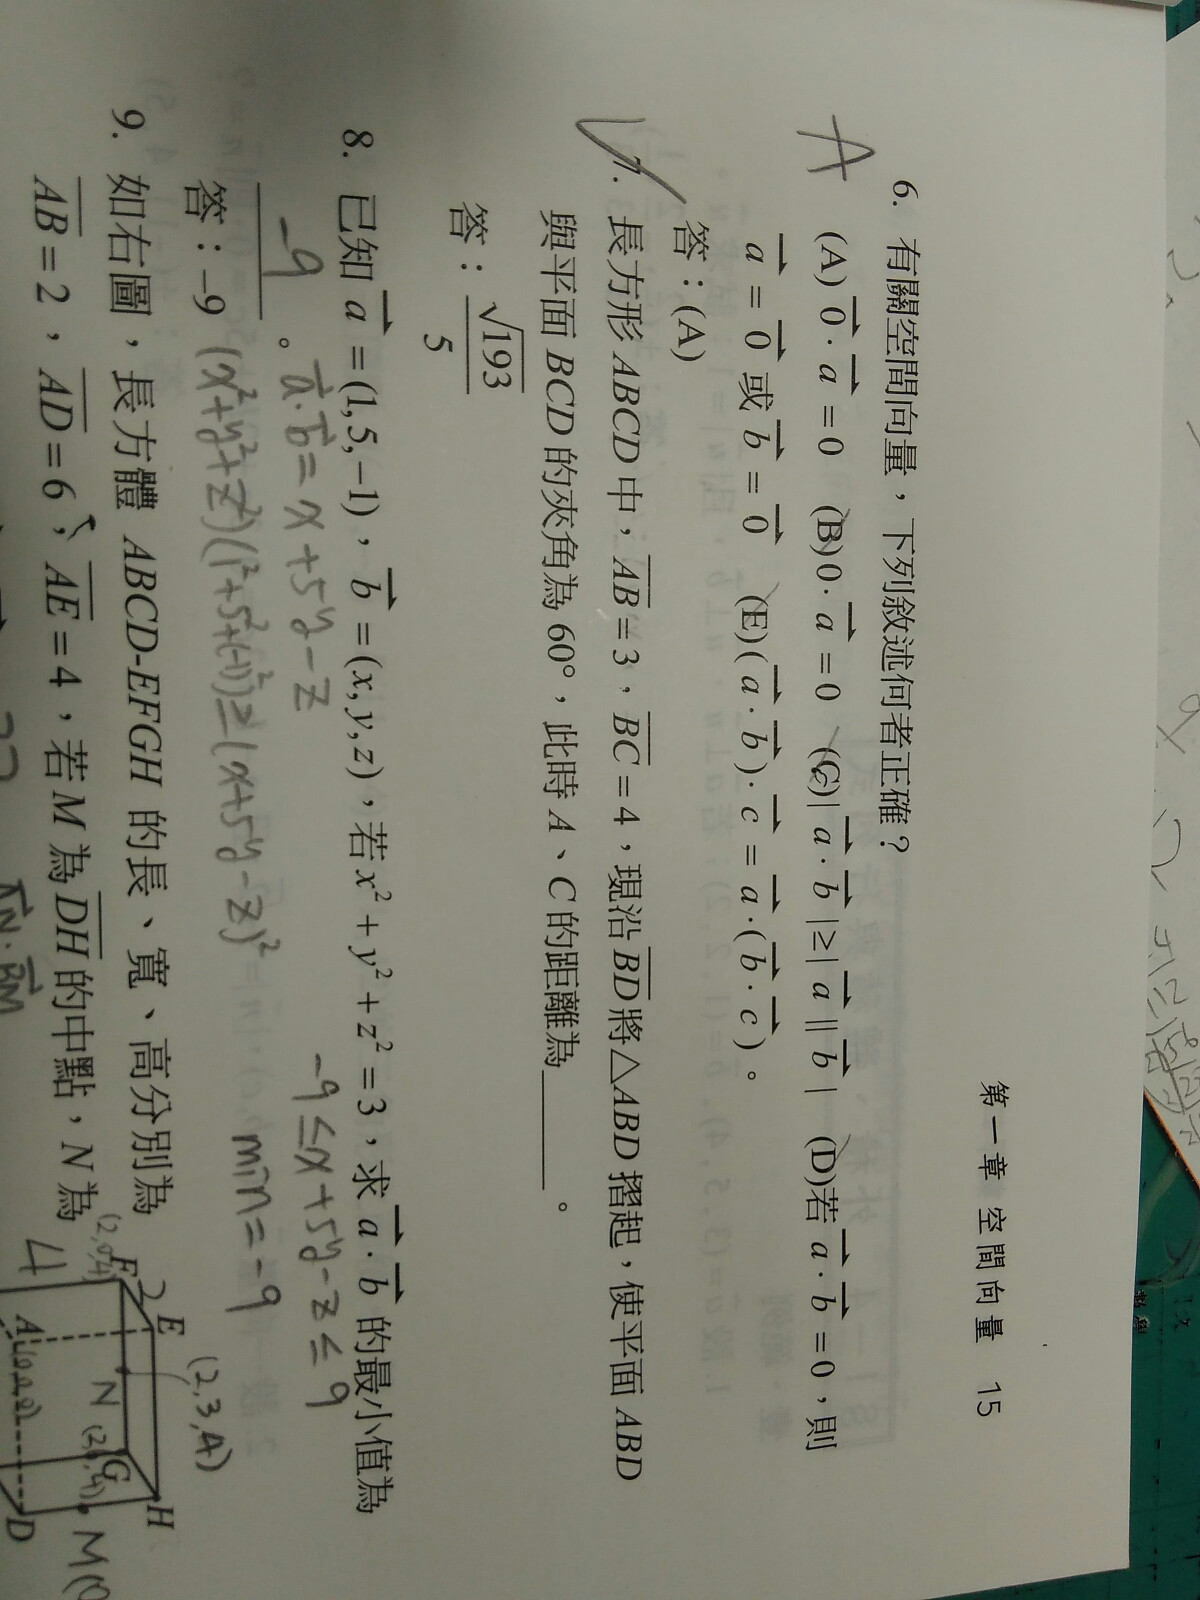 第一章 空間向量 15
6. 有關空間向量，下列敘述何者正確？
A (A) 0 · a = 0 (B)0 · a = 0 (C)| a · b |≥| a || b | (D)若 a · b = 0，則
a = 0 或 b = 0 (E)( a · b ) · c = a · ( b · c )。
答：(A)
7. 長方形 ABCD 中，AB = 3，BC = 4，現沿 BD 將△ABD 摺起，使平面 ABD
與平面 BCD 的夾角為 60°，此時 A、C 的距離為______。
答：√193/5
8. 已知 a = (1, 5, −1)，b = (x, y, z)，若 x² + y² + z² = 3，求 a · b 的最小值為
-9 。
a·b = x+5y-z
-9 ≤ x+5y-z ≤ 9
答：−9
(x²+y²+z²)(1²+5²+(-1)²) ≥ (x+5y-z)²
min = -9
9. 如右圖，長方體 ABCD-EFGH 的長、寬、高分別為
AB = 2，AD = 6，AE = 4，若 M 為 DH 的中點，N 為
(2,3,4)
(2,0,4)
E
H
F
2
4
N
G
A
D
M(0
AN · BM